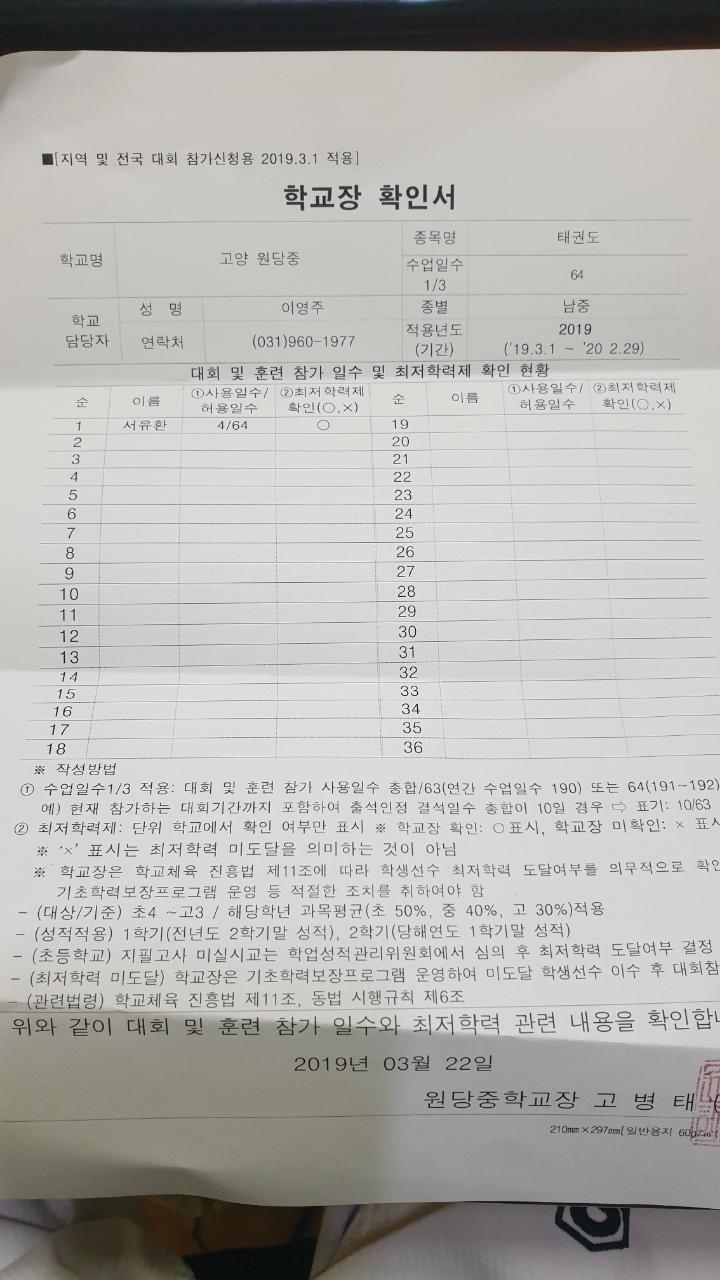 ■[지역 및 전국 대회 참가신청용 2019.3.1 적용]
학교장 확인서
학교명 고양 원당중 종목명 태권도
수업일수 1/3 64
학교 담당자 성 명 이영주 종별 남중
연락처 (031)960-1977 적용년도 (기간) 2019 ('19.3.1 ~ '20 2.29)
대회 및 훈련 참가 일수 및 최저학력제 확인 현황
순 이름 ①사용일수/허용일수 ②최저학력제 확인(○,×) 순 이름 ①사용일수/허용일수 ②최저학력제 확인(○,×)
1 서유환 4/64 ○ 19
2 20
3 21
4 22
5 23
6 24
7 25
8 26
9 27
10 28
11 29
12 30
13 31
14 32
15 33
16 34
17 35
18 36
※ 작성방법
① 수업일수1/3 적용: 대회 및 훈련 참가 사용일수 총합/63(연간 수업일수 190) 또는 64(191~192)
예) 현재 참가하는 대회기간까지 포함하여 출석인정 결석일수 총합이 10일 경우 ⇨ 표기: 10/63
② 최저학력제: 단위 학교에서 확인 여부만 표시 ※ 학교장 확인: ○표시, 학교장 미확인: × 표시
※ '×' 표시는 최저학력 미도달을 의미하는 것이 아님
※ 학교장은 학교체육 진흥법 제11조에 따라 학생선수 최저학력 도달여부를 의무적으로 확인
기초학력보장프로그램 운영 등 적절한 조치를 취하여야 함
- (대상/기준) 초4 ~고3 / 해당학년 과목평균(초 50%, 중 40%, 고 30%)적용
- (성적적용) 1학기(전년도 2학기말 성적), 2학기(당해연도 1학기말 성적)
- (초등학교) 지필고사 미실시교는 학업성적관리위원회에서 심의 후 최저학력 도달여부 결정
- (최저학력 미도달) 학교장은 기초학력보장프로그램 운영하여 미도달 학생선수 이수 후 대회참
- (관련법령) 학교체육 진흥법 제11조, 동법 시행규칙 제6조
위와 같이 대회 및 훈련 참가 일수와 최저학력 관련 내용을 확인합니
2019년 03월 22일
원당중학교장 고 병 태 (
210mm×297mm[일반용지 60g/㎡(